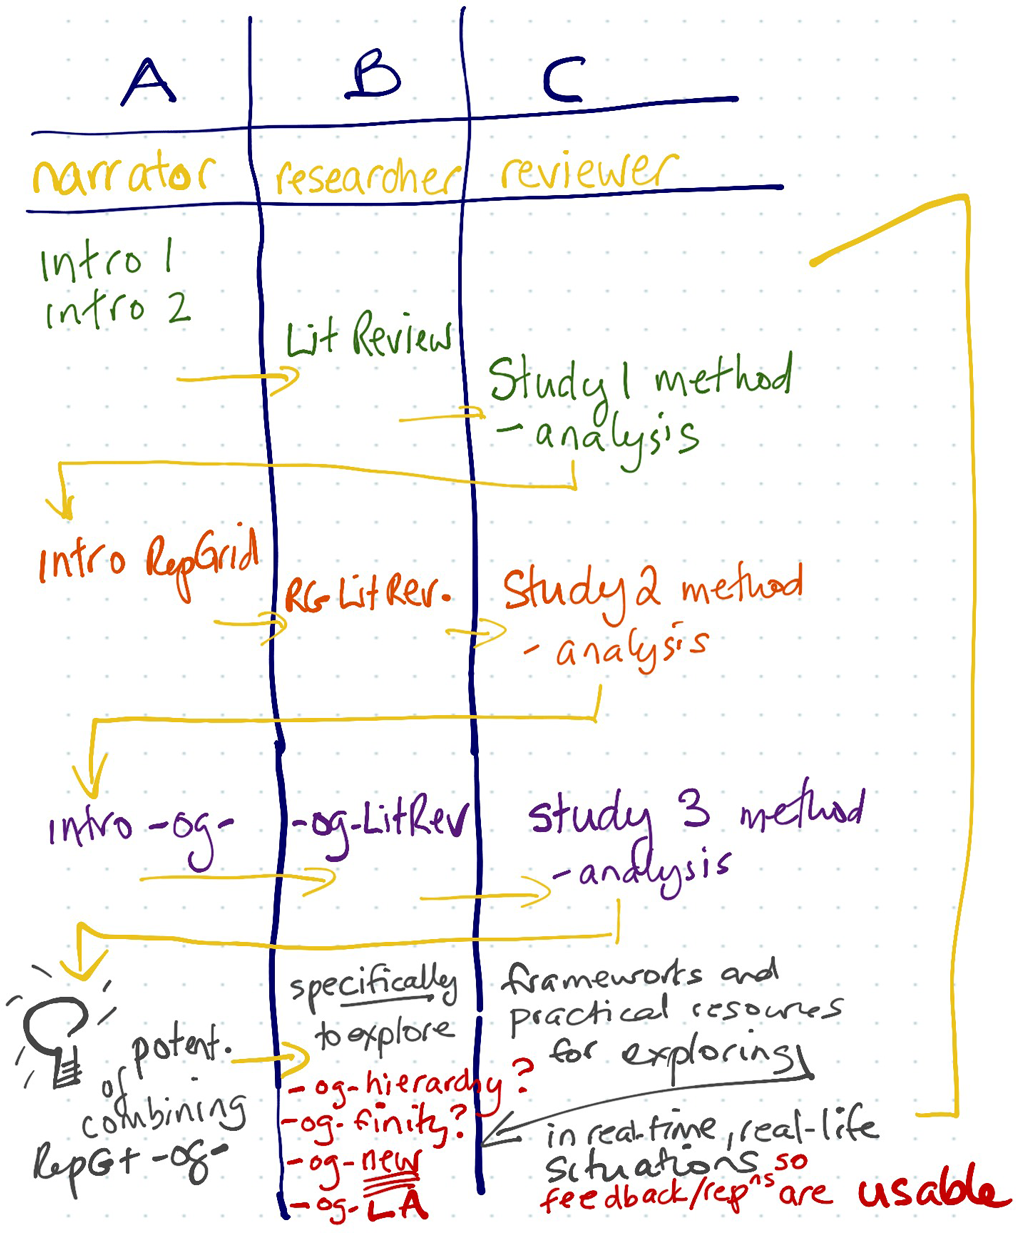 A B C
narrator researcher reviewer
Intro 1
intro 2
Lit Review
Study 1 method
- analysis
Intro RepGrid
RG LitRev.
Study 2 method
- analysis
Intro -og-
-og-LitRev
Study 3 method
- analysis
potent.
of
combining
RepG + -og-
specifically
to explore
-og-hierarchy?
-og-finity?
-og-new
-og-LA
frameworks and
practical resources
for exploring
in real-time, real-life
situations so
feedback/repⁿˢ are usable